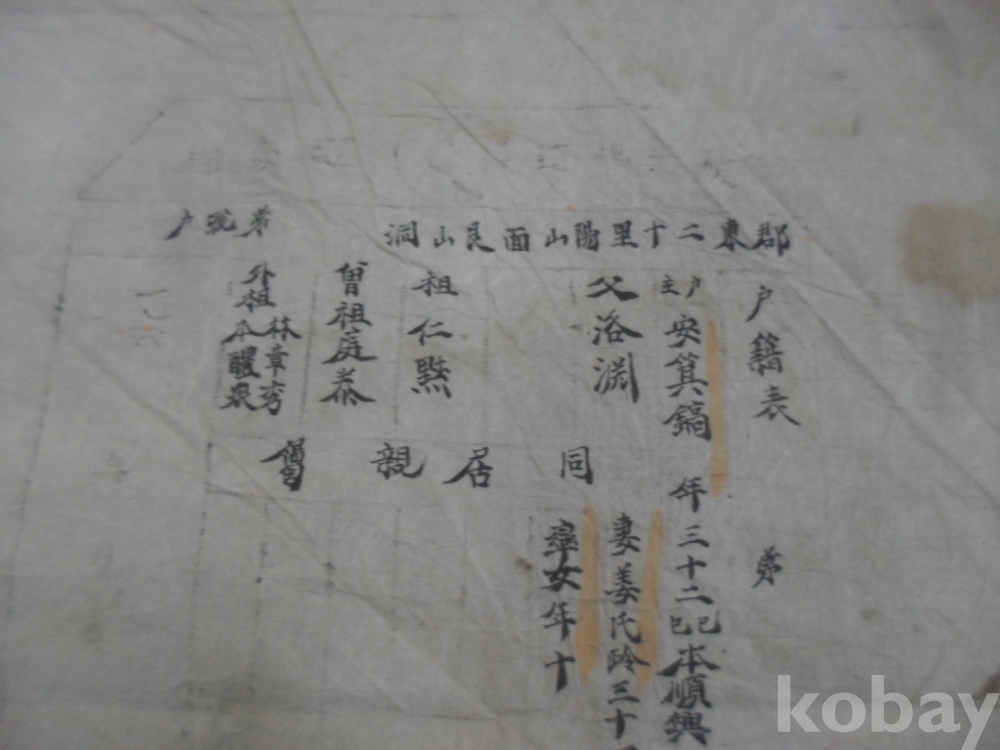 戶籍表 第
郡東二十里陽山面艮山洞 第號戶
戶主 安箕鎬 年三十二己巳本順興
父洛淵
祖仁黙
曾祖庭泰
外祖林章秀本醴泉
同居親舊
妻姜氏齡三十
率女年十
kobay